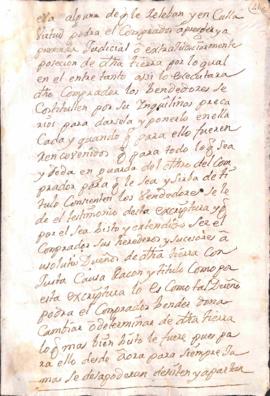 cosa alguna de q le deban y en Cuia
Virtud podra el Comprador aprender ya
probada Judicial o extraJudicialmente
posecion de dha tierra por lo qual
en el entre tanto assi lo executara
dho Comprador los bendedores Se
Constituien por Sus Inquilinos preca
rios para darsela y ponerlo en ella
Cada y quando q para ello fueren
Reconvenidos q para todo lo q Sea
y deba en guarda del dho del Com
prador para q le Sea y Sirba de ti
tulo Consienten los bendedores Se le
de el testimonio desta escriptura y q
por el Sea bisto y entendido Ser el
Comprador Sus herederos y Sucesores a
usolutos Dueños de dha tierra con
Justa Causa Racon y titulo Como pa
esta escriptura lo es Como tal Dueño
podra el Comprador bender Dona
Cambiar o determinar de dha tierra
lo q mas bien bisto le fuere pues pa
ra ello desde aora para siempre Ja
mas se desapoderan desisten y apartan